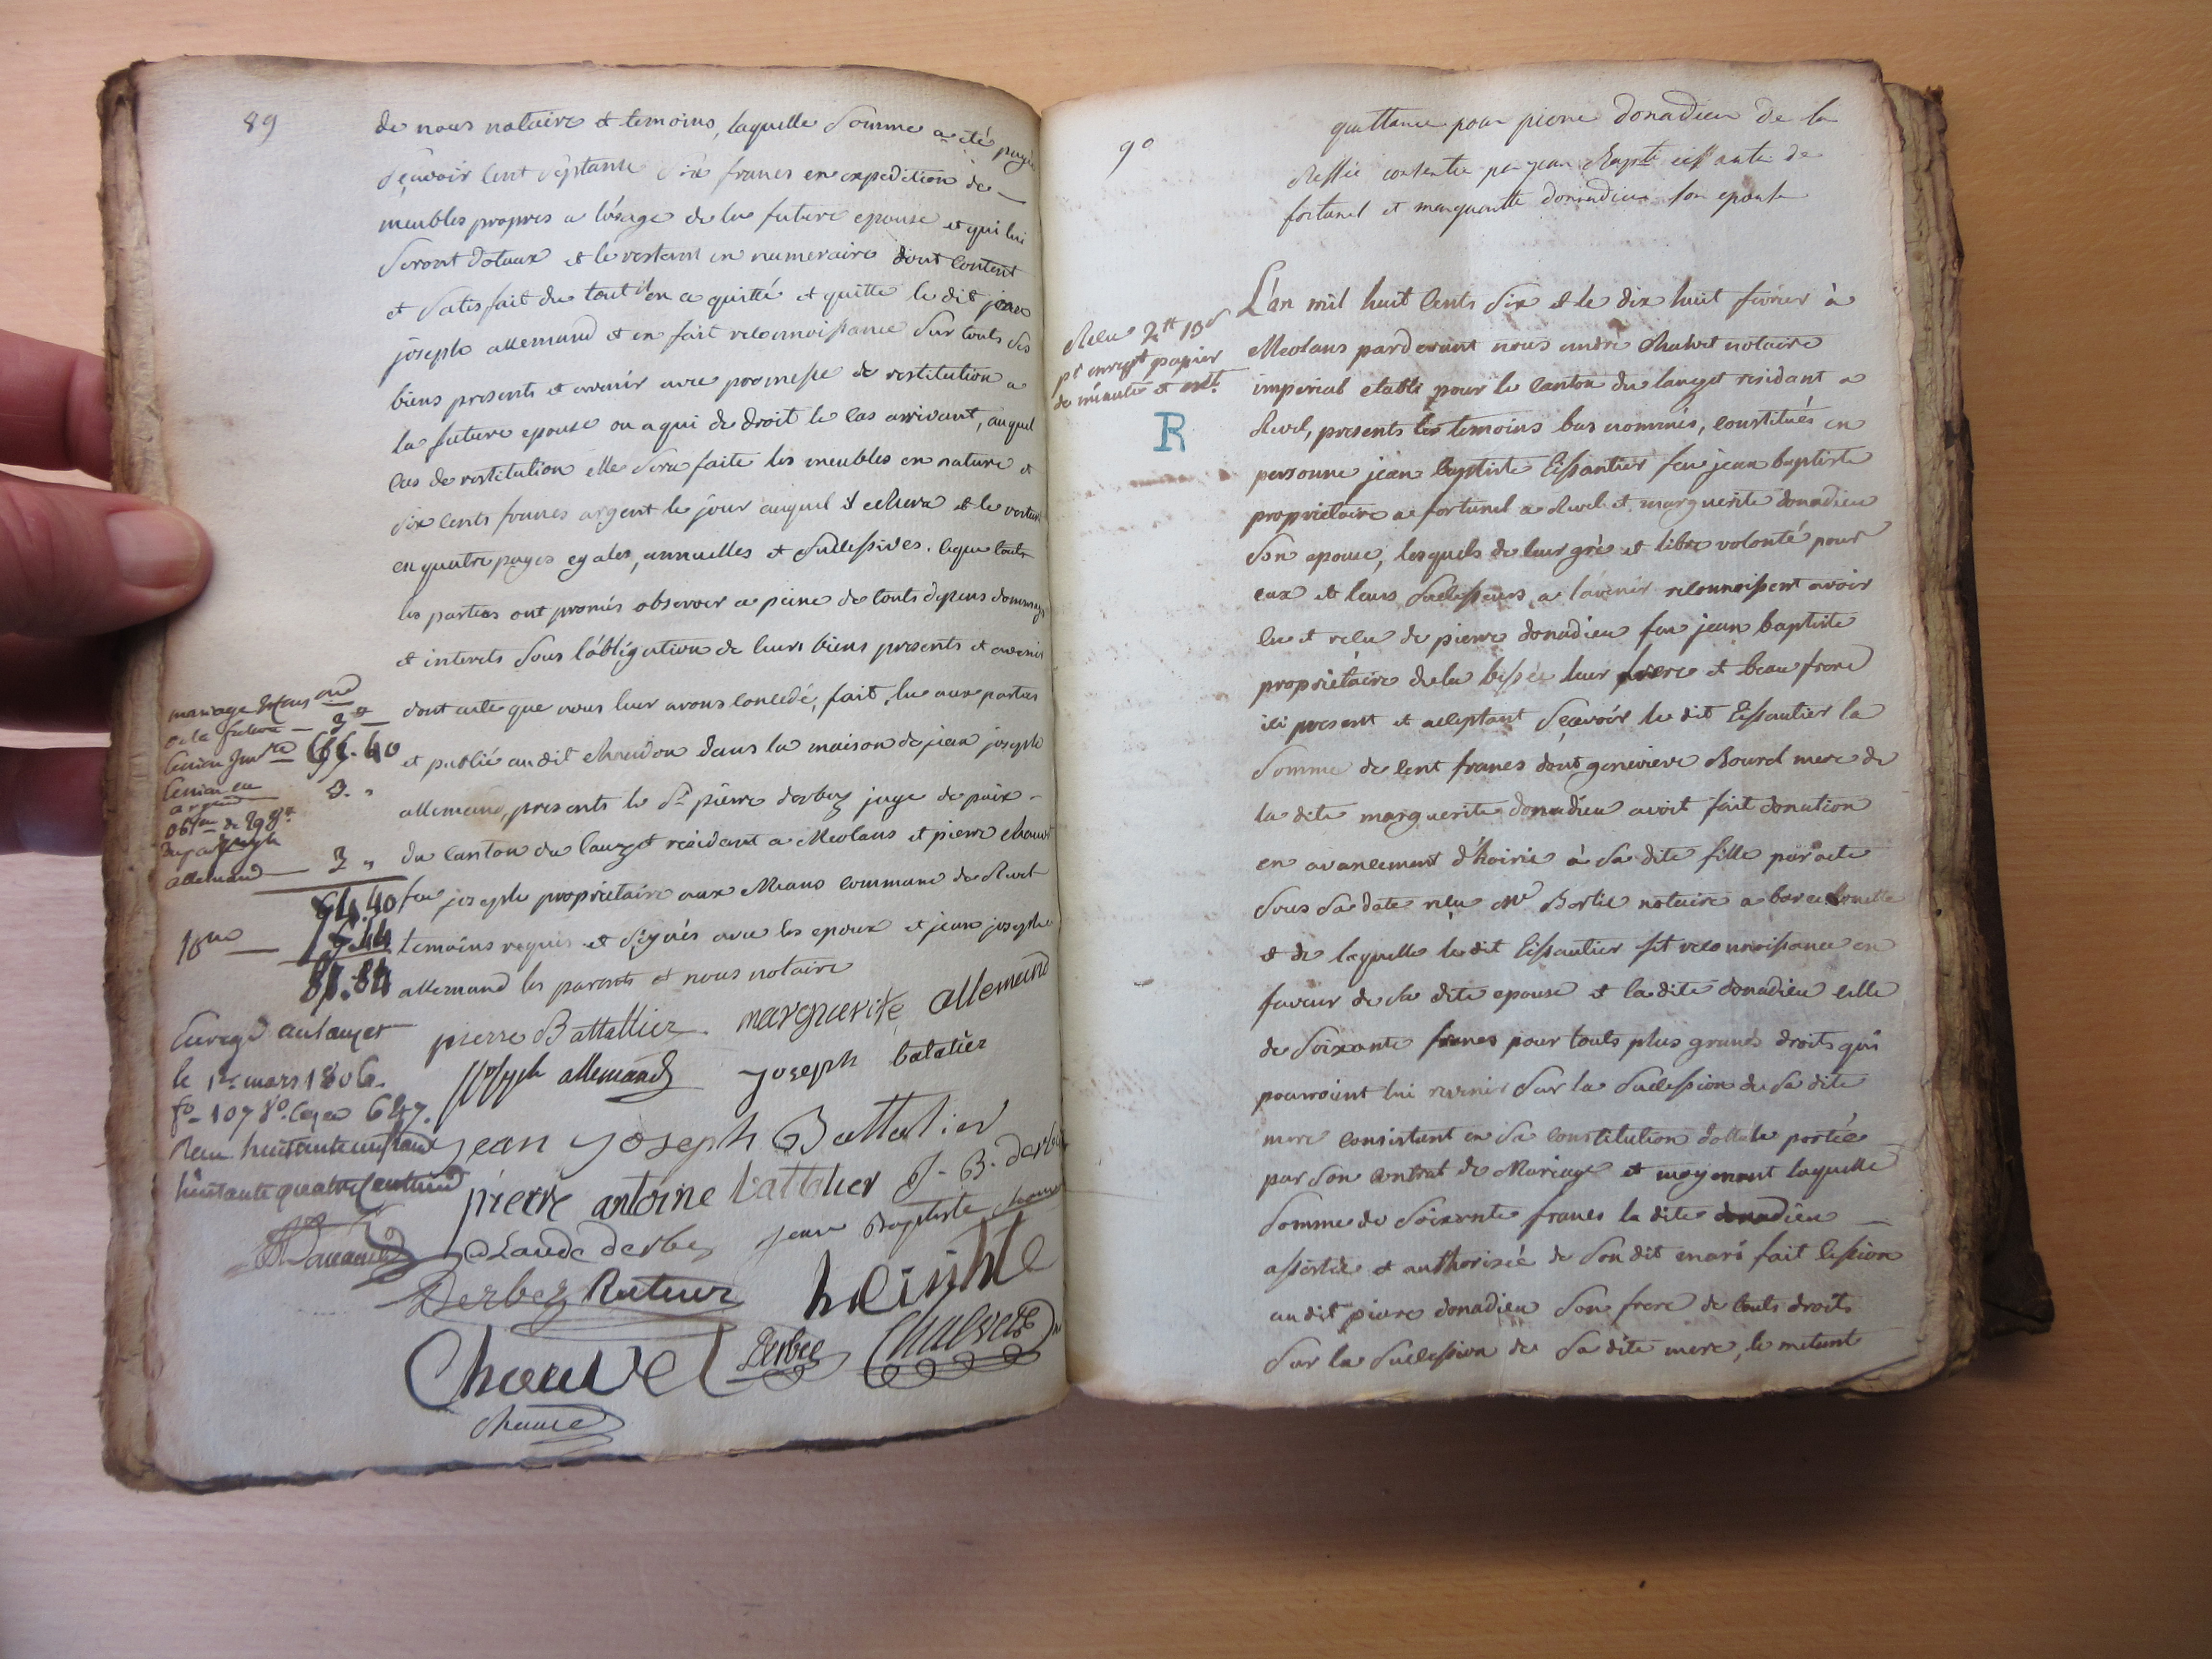 89
de nous notaire et temoins, laquelle Somme a eté payée
Sçavoir Cent Septante Six francs en expedition de
meubles propres a l'usage de la future epouse et qui lui
Seront dotaux et le restant en numeraire dont Content
et Satisfait du tout il en a quitté et quitte le dit jean
joseph allemand et en fait reconnoissance Sur touts Ses
biens presents et avenir avec promesse de restitution a
la future epouse ou a qui de droit le Cas arrivant, auquel
Cas de restitution elle Sera faite les meubles en nature et
Six Cents francs argent le jour auquel il echerra et le restant
en quatre payes egales, annuelles et Successives. Ce que touts
les parties ont promis observer a peine de touts depens dommages
et interets Sous l'obligation de leurs biens presents et avenir
dont acte que nous leur avons Concedé, fait, lu aux parties
et publié au dit Chaudon dans la maison de jean joseph
allemand, presents le Sr pierre derbez juge de paix
du Canton du Lauzet residant a Meolans et pierre Chauvet
feu joseph proprietaire aux Means Commune de Revel
temoins requis et Signés avec les epoux et jean joseph
allemand les parents et nous notaire
3.
3 "
94.40
10me
81.84
Enregé au Lauzet
le 1er mars 1806.
fo 107 Vo Cases 6 et 7.
huitante quatre Centimes
pierre Battallier marguerite allemand
joseph allemand joseph batalier
jean joseph Battalier
pierre antoine battalier J. B. derbez
Claude derbez jean Baptiste
Derbez
Chauvet Derbez Chalvet
90
quittance pour pierre donadieu de la
Bessée consentie par jean Bapte eissautier de
fortunel et marguerite donnadieu Son epouse
Relu 2tt 13s
pr enregt papier
de minute et extt.
R
L'an mil huit Cents Six et le dix huit fevrier à
Meolans pardevant nous andré Chalvet notaire
imperial etabli pour le Canton du lauzet residant a
Revel, presents les temoins bas nommés, Constitués en
personne jean baptiste Eissautier feu jean baptiste
proprietaire a fortunel a Revel et marguerite donadieu
Son epouse, lesquels de leur gré et libre volonté pour
eux et leurs Successeurs a l'avenir reconnoissent avoir
eu et reçu de pierre donadieu feu jean baptiste
proprietaire de la bessée leur frere et beau frere
ici present et acceptant Sçavoir le dit Eissautier la
Somme de Cent francs dont genevieve Bourel mere de
la dite marguerite donadieu avoit fait donation
en avancement d'hoirie à Sa dite fille par acte
Sous Sa date reçu Me Bertie notaire a barcelonette
et de laquelle le dit Eissautier fit reconnoissance en
faveur de Sa dite epouse et la dite donadieu Celle
de Soixante francs pour touts plus grands droits qui
pourroient lui revenir Sur la Succession de Sa dite
mere Consistant en Sa Constitution dottale portée
par Son Contrat de Mariage et moyenant laquelle
Somme de Soixante francs la dite donadieu
assistée et authorisée de Son dit mari fait Cession
au dit pierre donadieu Son frere de touts droits
Sur la Succession de Sa dite mere, le metant